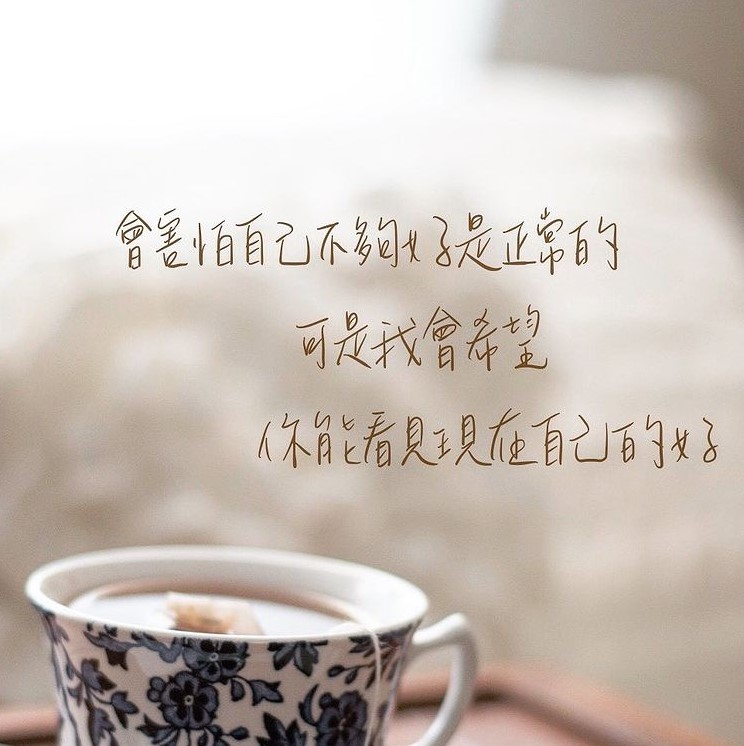 會害怕自己不夠好是正常的
可是我會希望
你能看見現在自己的好